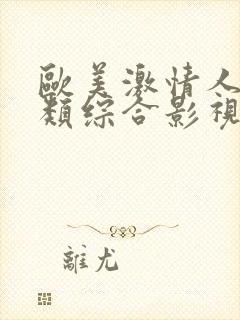 歐美激情人
類綜合影視
離尤